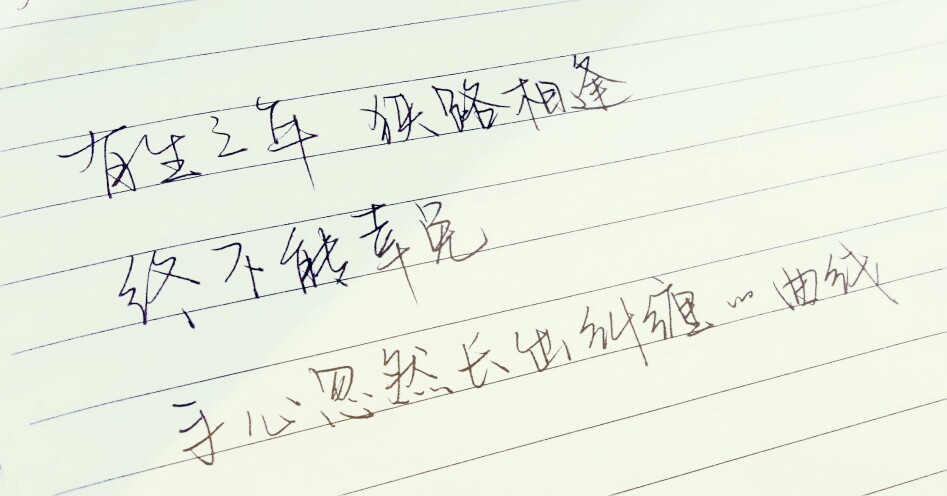 有生之年 狭路相逢
终不能幸免
手心忽然长出纠缠的曲线